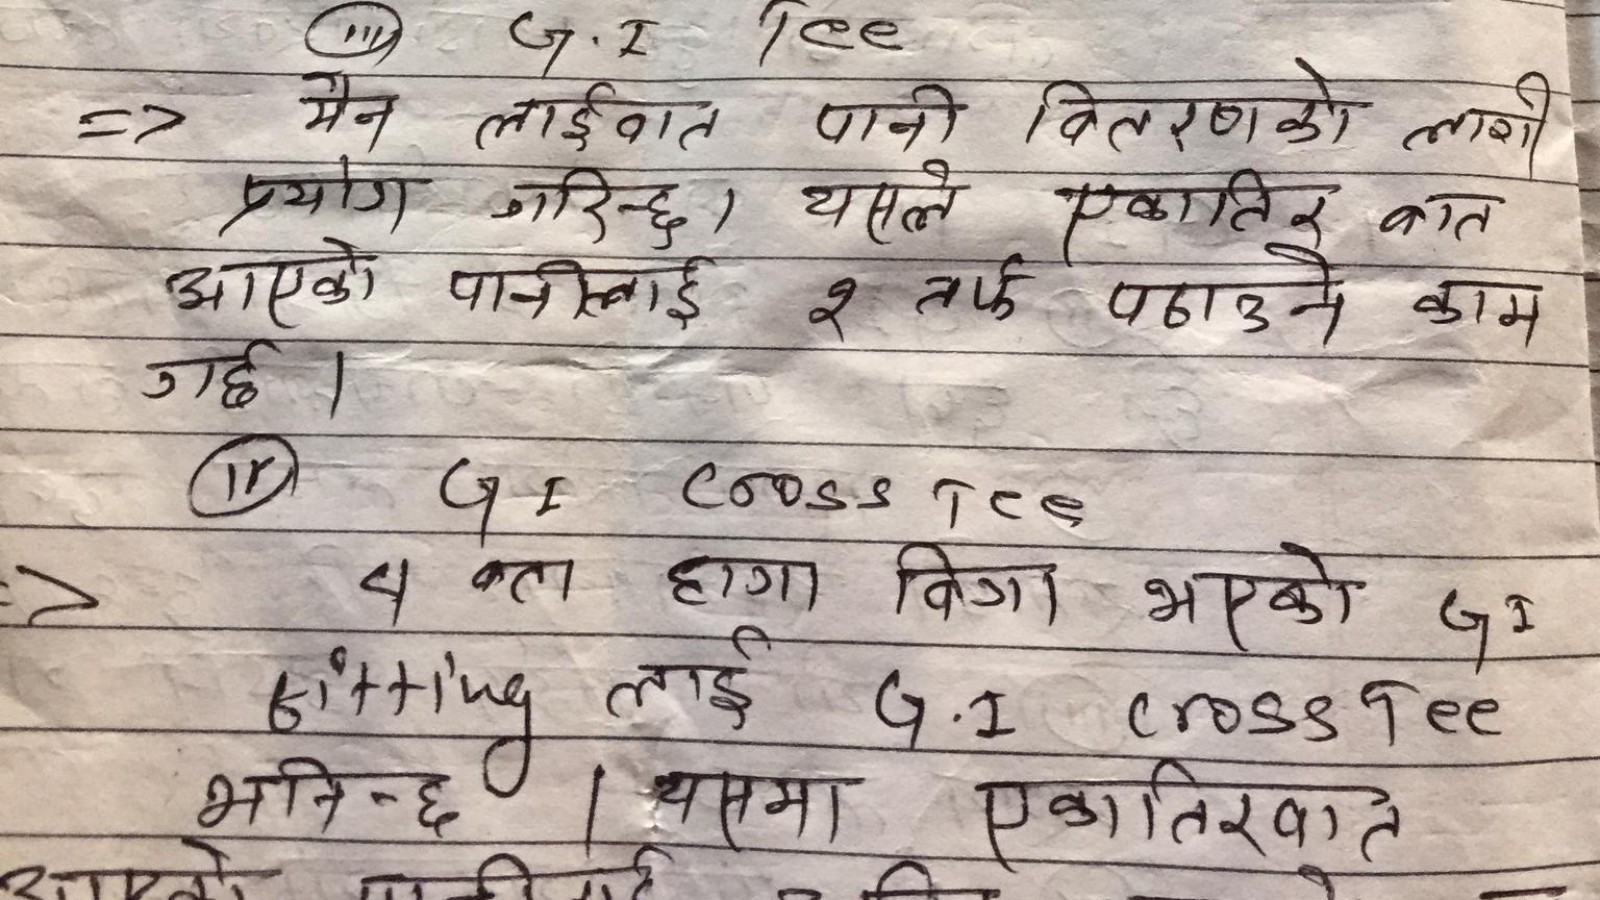 (iii) G.I Tee
=> मैन लाईवात पानी वितरणको लागी
प्रयोग गरिन्छ। यसले एकातिर बात
आएको पानीलाई २ तर्फ पठाउने काम
गर्छ।
(iv) GI Cross Tee
=> ४ वटा हागा विगा भएको GI
fitting लाई G.I Cross Tee
भनिन्छ । यसमा एकातिरवात
आएको पानीलाई